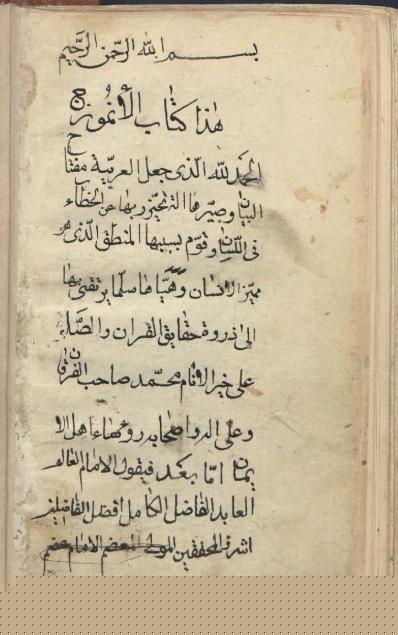 بسم الله الرحمن الرحيم
هذا كتاب الأنموزج
الحمد لله الذى جعل العربية مفتاح
البيان وصيرها الة يحترز بها عن الخطاء
فى اللسان وقوم بسببها المنطق الذى هو
مميز الانسان وهياها سلما يرتقى بها
الى ذروة حقايق القران والصلاة
على خير الانام محمد صاحب الفرقان
وعلى اله واصحابه اهل الا
يمان اما بعد فيقول الامام العالم
العابد الفاضل الكامل افضل الفاضلين
اشرف المحققين الامام